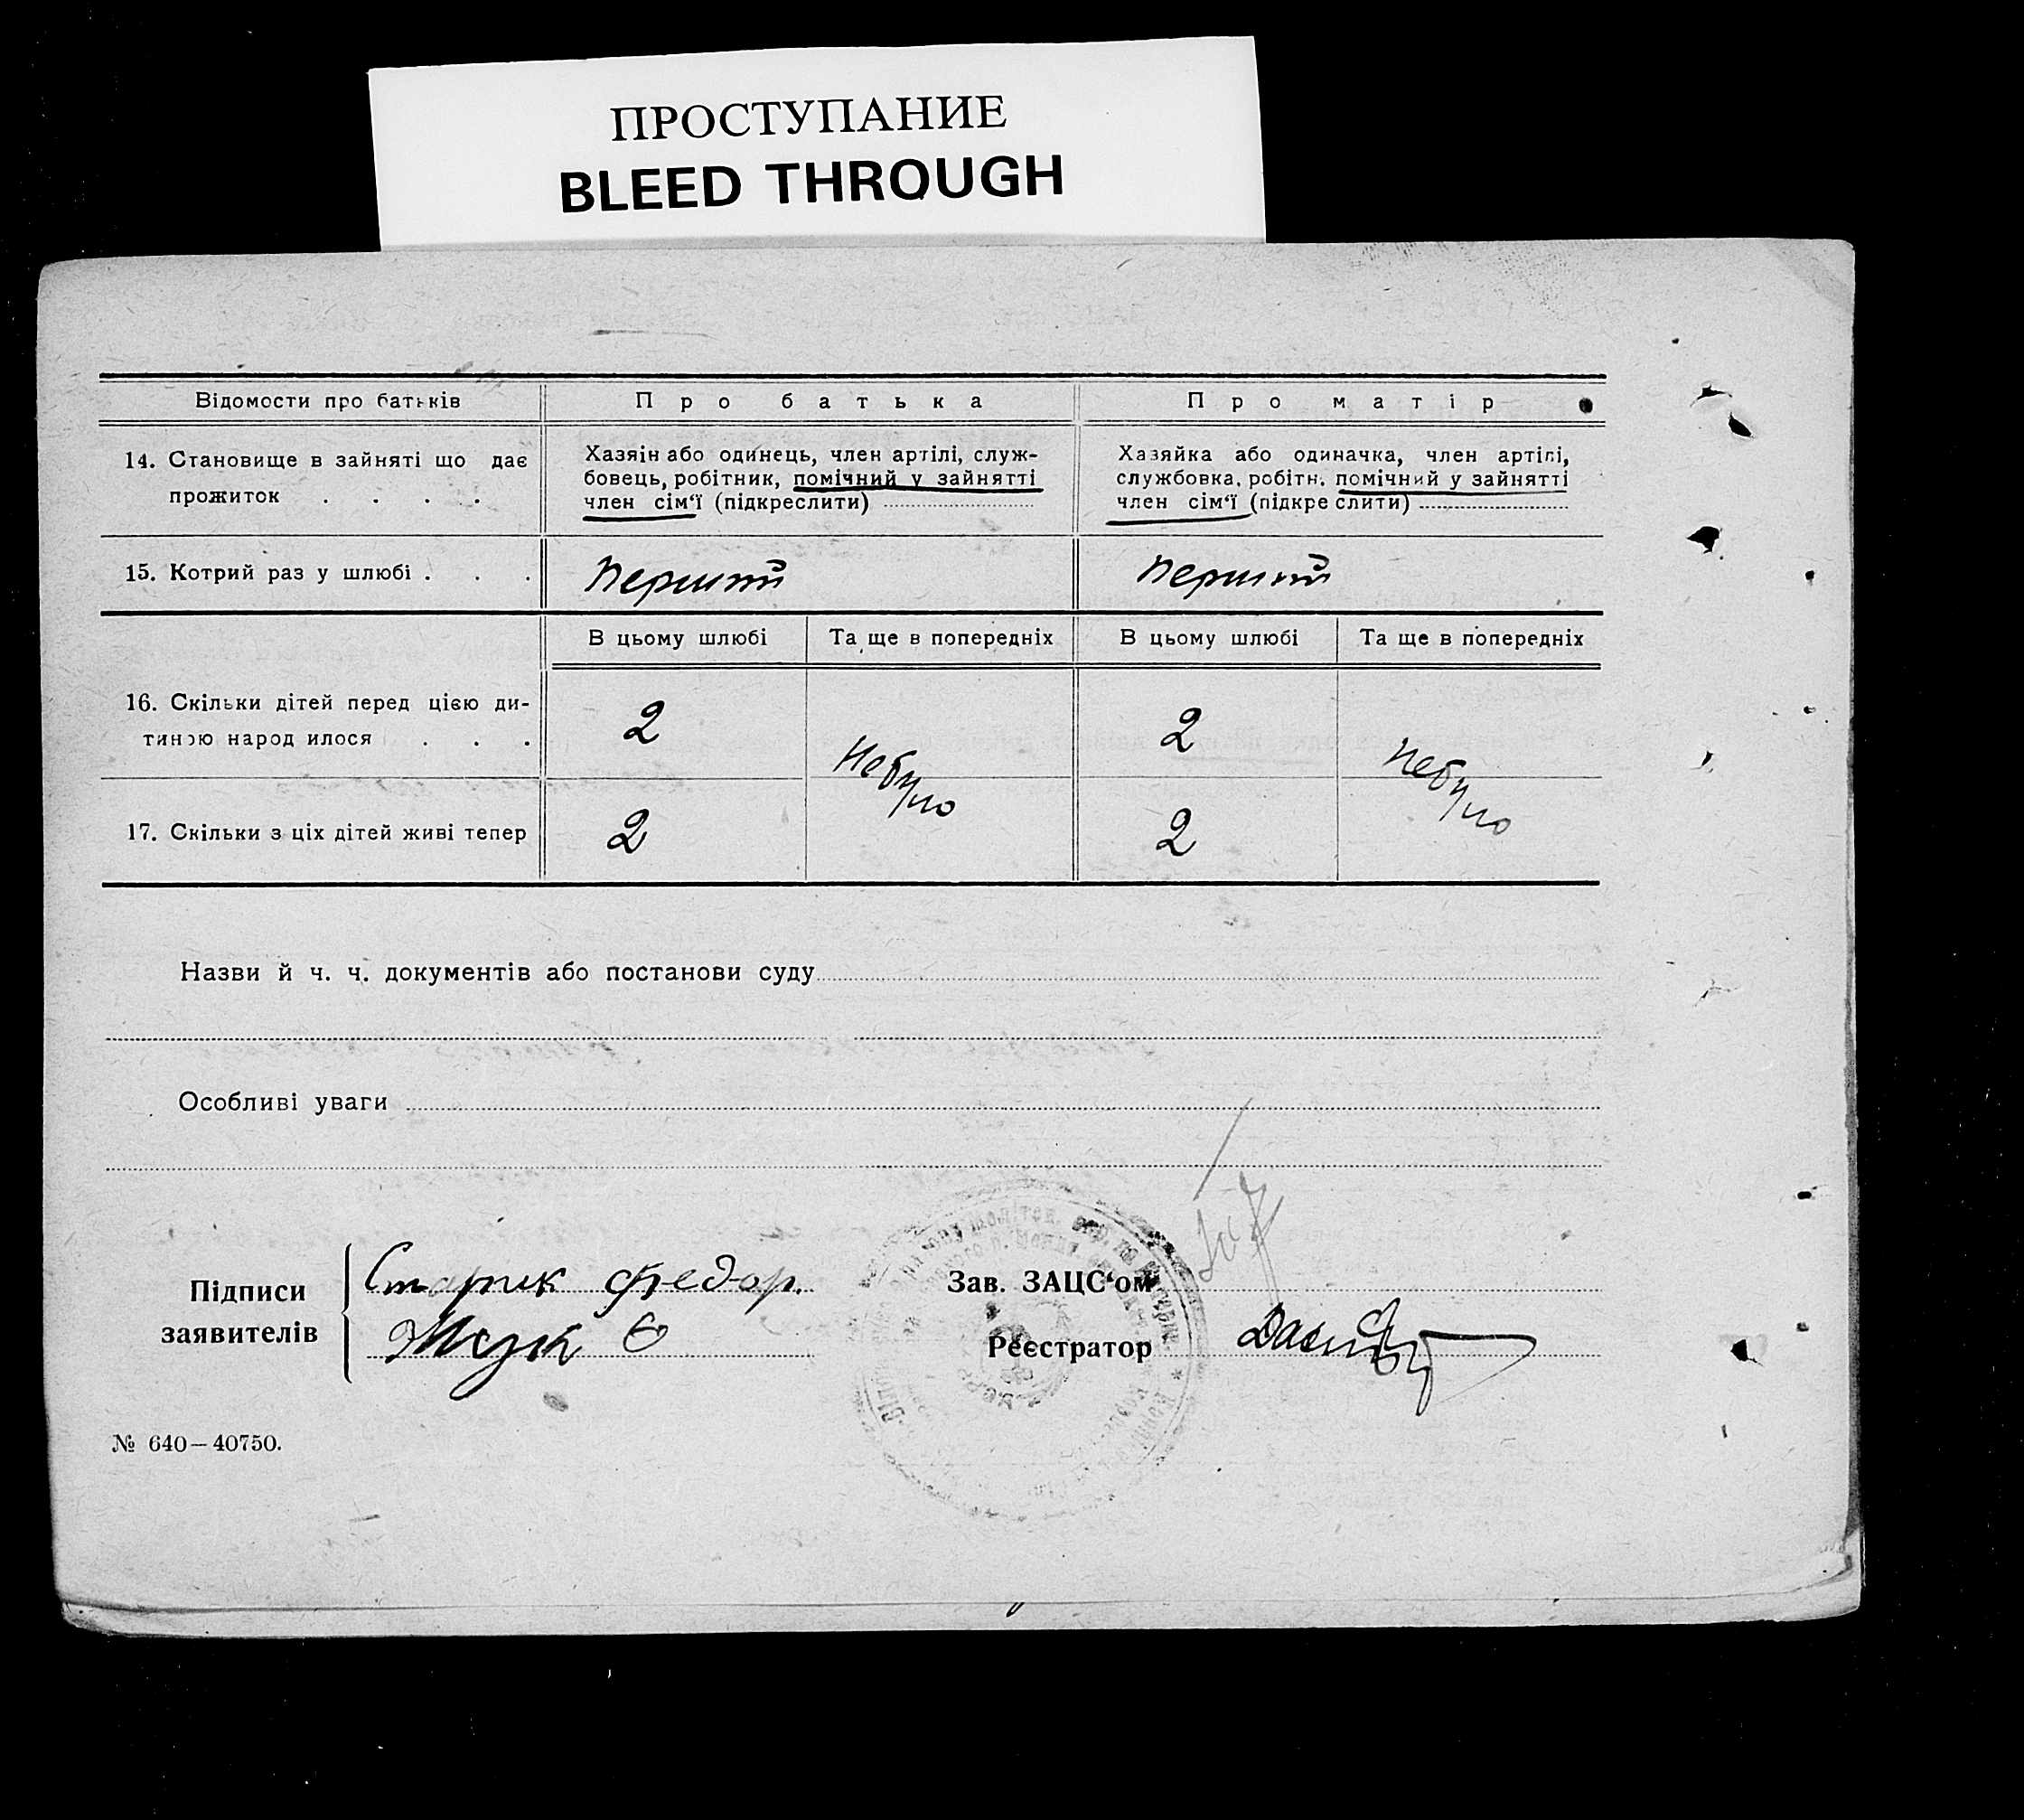 ПРОСТУПАНИЕ
BLEED THROUGH
Відомости про батьків
Про батька
Про матір
14. Становище в зайняті що дає
прожиток . . . .
Хазяін або одинець, член артілі, служ-
бовець, робітник, помічний у зайнятті
член сім‘ї (підкреслити)
Хазяйка або одиначка, член артілі,
службовка, робітн. помічний у зайнятті
член сім‘ї (підкреслити)
15. Котрий раз у шлюбі . . .
перший
перший
В цьому шлюбі
Та ще в попередніх
В цьому шлюбі
Та ще в попередніх
16. Скільки дітей перед цією ди-
тиною народилося . . .
2
Небуло
2
Небуло
17. Скільки з ціх дітей живі тепер
2
2
Назви й ч. ч. документів або постанови суду
Особливі уваги
Підписи
заявителів
Старик Федор.
Жук
Зав. ЗАЦС‘ом
Реєстратор
№ 640—40750.